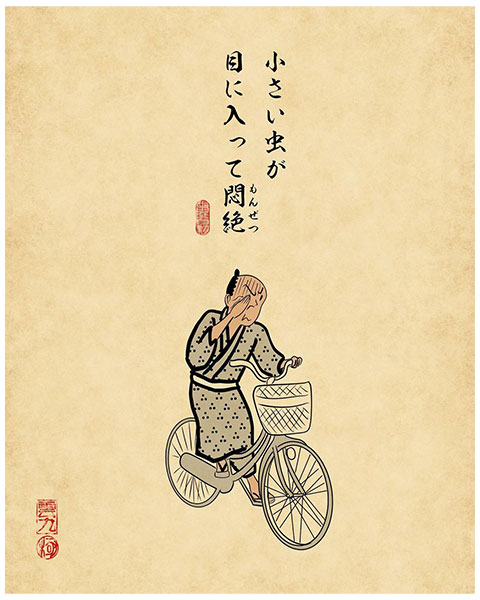 小さい虫が
目に入って悶絶
もんぜつ